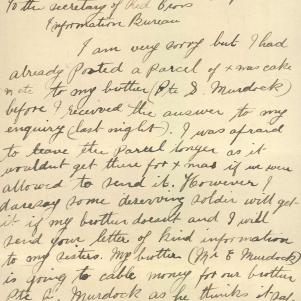 To the secretary of Red Cross
Information Bureau
I am very sorry but I had
already Posted a parcel of xmas cake
to my brother (Pte S. Murdock)
before I received the answer to my
enquiry (last night). I was afraid
to leave the parcel longer as it
wouldnt get there for xmas if we were
allowed to send it. However I
daresay some deserving soldier will get
it if my brother doesnt and I will
send your letter of kind information
to my sisters. My brother (Mr E Murdock)
is going to cable money for our brother
Pte L. Murdock as he thinks it is